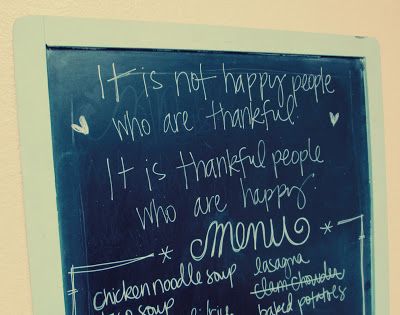 It is not happy people
who are thankful.
It is thankful people
who are happy.
* menu *
chicken noodle soup
lasagna
clam chowder
soup
baked potatoes